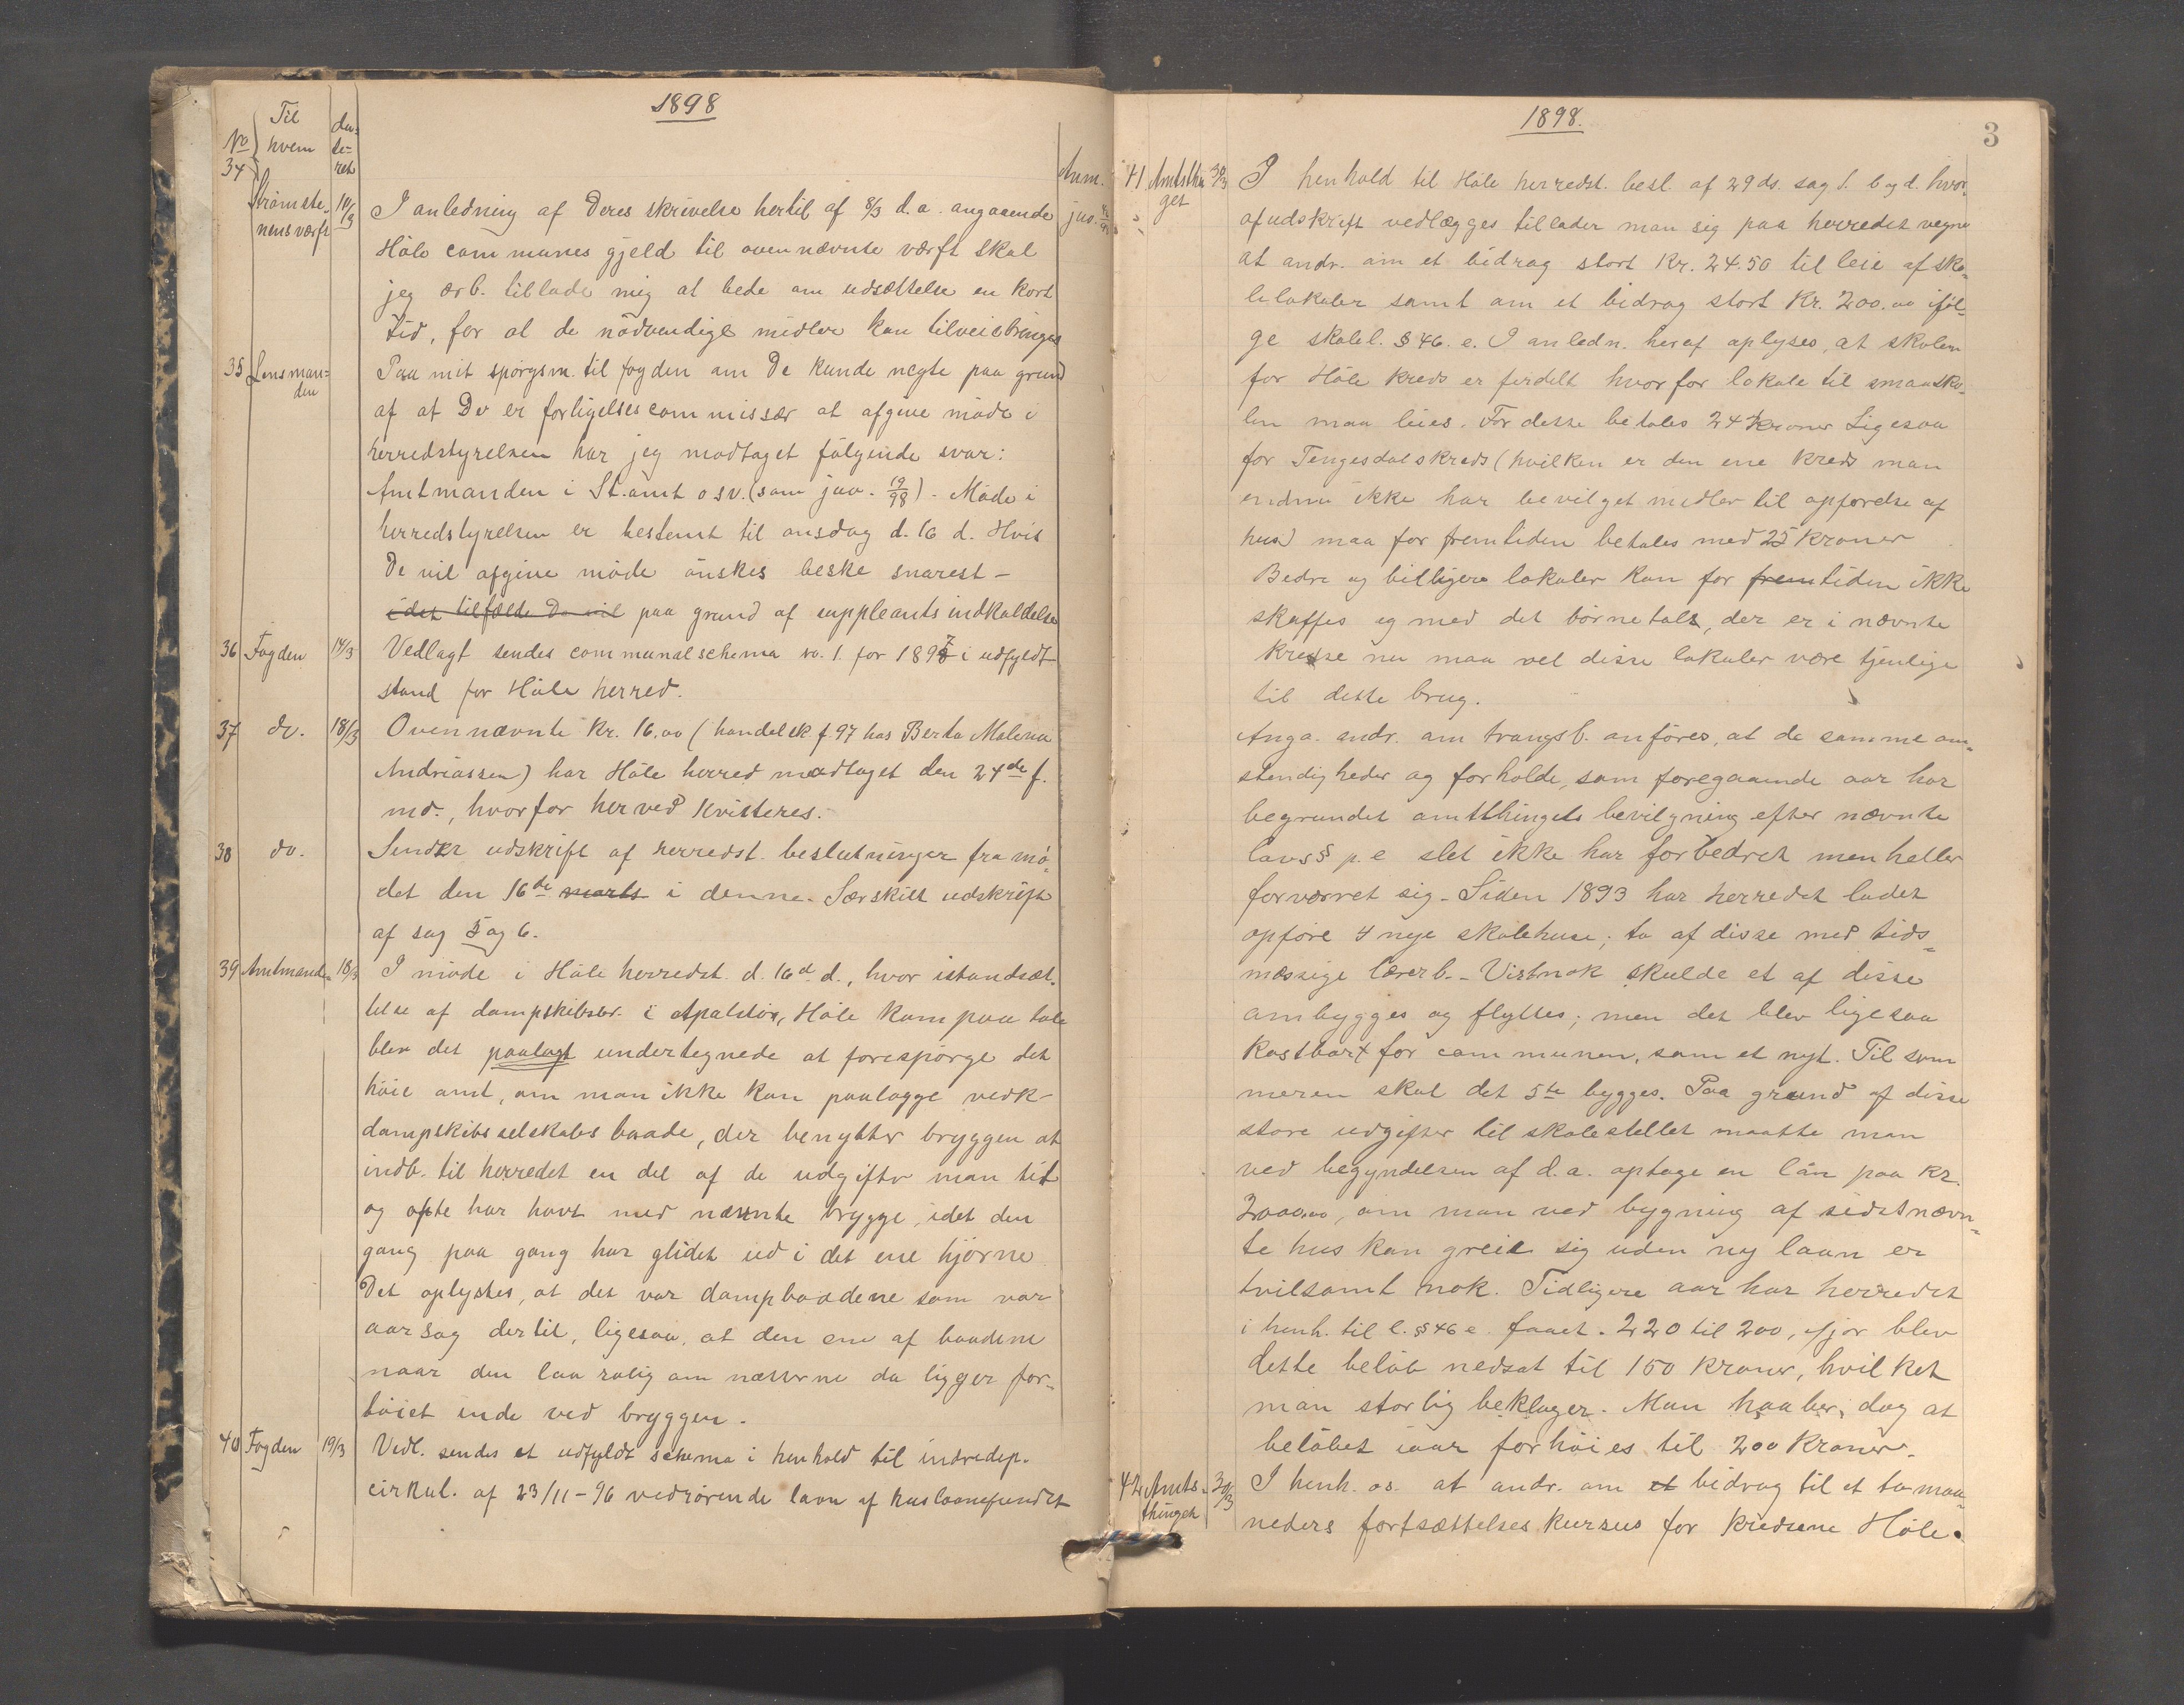 1898
No
Til
hvem
da-
te-
ret
Anm.
34
Strømste-
nens værft
10/3
I anledning af Deres skrivelse hertil af 8/3 d.a. angaaende
jno.
Høle communes gjeld til ovennævnte værft skal
jeg ærb. tillade mig at bede om udsættelse en kort
tid, for at de nødvendige midler kan tilveiebringes
35
Lensman=
den
Paa mit spørgsm. til fogden om De kunde negte paa grund
af at De er forligelsescommissær at afgive møde i
herredstyrelsen har jeg modtaget følgende svar:
Amtmanden i St. amt osv. (som jno. 19/98). Møde i
herredstyrelsen er bestemt til onsdag d. 16 d. Hvis
De vil afgive møde ønskes beske snarest –
i det tilfælde De vil paa grund af suppleants indkaldelse
36 Fogden 14/3 Vedlagt sendes communalschema no. 1. for 1897 i udfyldt
stand for Høle herred.
37 do. 18/3 Ovennævnte kr. 16,00 (handelsk f. 97 hos Berta Malena
Andreassen) har Høle herred modtaget den 24de f.
md., hvorfor herved kvitteres.
38 do. Sender udskrift af herredst. beslutninger fra mø-
det den 16de marts i denne. Særskilt udskrift
af sag 5 og 6.
39 Amtmanden 18/3 I møde i Høle herredst. d. 16d d., hvor istandsæt-
telse af dampskibsbr. i Apalstø, Høle kom paa tale
blev det paalagt undertegnede at forespørge det
høie amt, om man ikke kan paalægge vedk
dampskibsselskabs baade, der benytter bryggen at
indb. til herredet en del af de udgifter man tit
og ofte har havt med nævnte brygge, idet den
gang paa gang har glidet ud i det ene hjørne
Det oplystes, at det var dampbaadene som var
aarsag dertil, ligesaa, at den ene af baadene
naar den laa rolig om nætterne da ligger for-
tøiet inde ved bryggen.
40 Fogden 19/3 Vedl. sendes et udfyldt schema i henhold til indredep.
cirkul. af 23/11-96 vedrørende laan af huslaanefundet
1898.
3
41 Amtsthin
get
30/3
I henhold til Høle herredst. besl. af 29 ds. sag 1. b og d. hvor-
af udskrift vedlægges tillader man sig paa herredets vegne
at andr. om et bidrag stort Kr. 24.50 til leie af sko-
lelokaler samt om et bidrag stort Kr. 200.00 iføl-
ge skolel. § 46. e. I anledn. heraf oplyses, at skolen
for Høle kreds er firdelt hvorfor lokale til smaasko-
len maa leies. For dette betales 24 kroner Ligesaa
for Tengesdalskreds (hvilken er den ene kreds man
endnu ikke har bevilget midler til opførelse af
hus) maa for fremtiden betales med 25 kroner
Bedre og billigere lokaler kan for fremtiden ikke
skaffes og med det børnetals, der er i nævnte
kredse nu maa vel disse lokaler være tjenlige
til dette brug.
Anga. andr. om trangsb. anføres, at de samme om-
stendigheder og forholde, som foregaaende aar har
begrundet amtsthingets bevilgning efter nævnte
lovs § p. e slet ikke har forbedret men heller
forværret sig. Siden 1893 har herredet ladet
opføre 4 nye skolehuse; to af disse med tids-
mæssige lærerb. – Vistnok skulde et af disse
ombygges og flyttes; men det blev ligesaa
kostbart for communen, som et nyt. Til som
meren skal det 5te bygges. Paa grund af disse
store udgifter til skolestellet maatte man
ved begyndelsen af d.a. optage en lån paa kr.
2000,00, om man ved bygning af sidstnævn-
te hus kan greie sig uden ny laan er
tvilsomt nok. Tidligere aar har herredet
i henh. til l. § 46 e. faaet. 220 til 200, ifjor blev
dette beløb nedsat til 150 kroner, hvilket
man storlig beklager. Man haaber dog at
beløbet iaar forhøies til 200 kroner.
42 Amts-
thinget
30/3
I henh. os. at andr. om et bidrag til et to maa-
neders fortsættelseskursus for kredsene Høle.